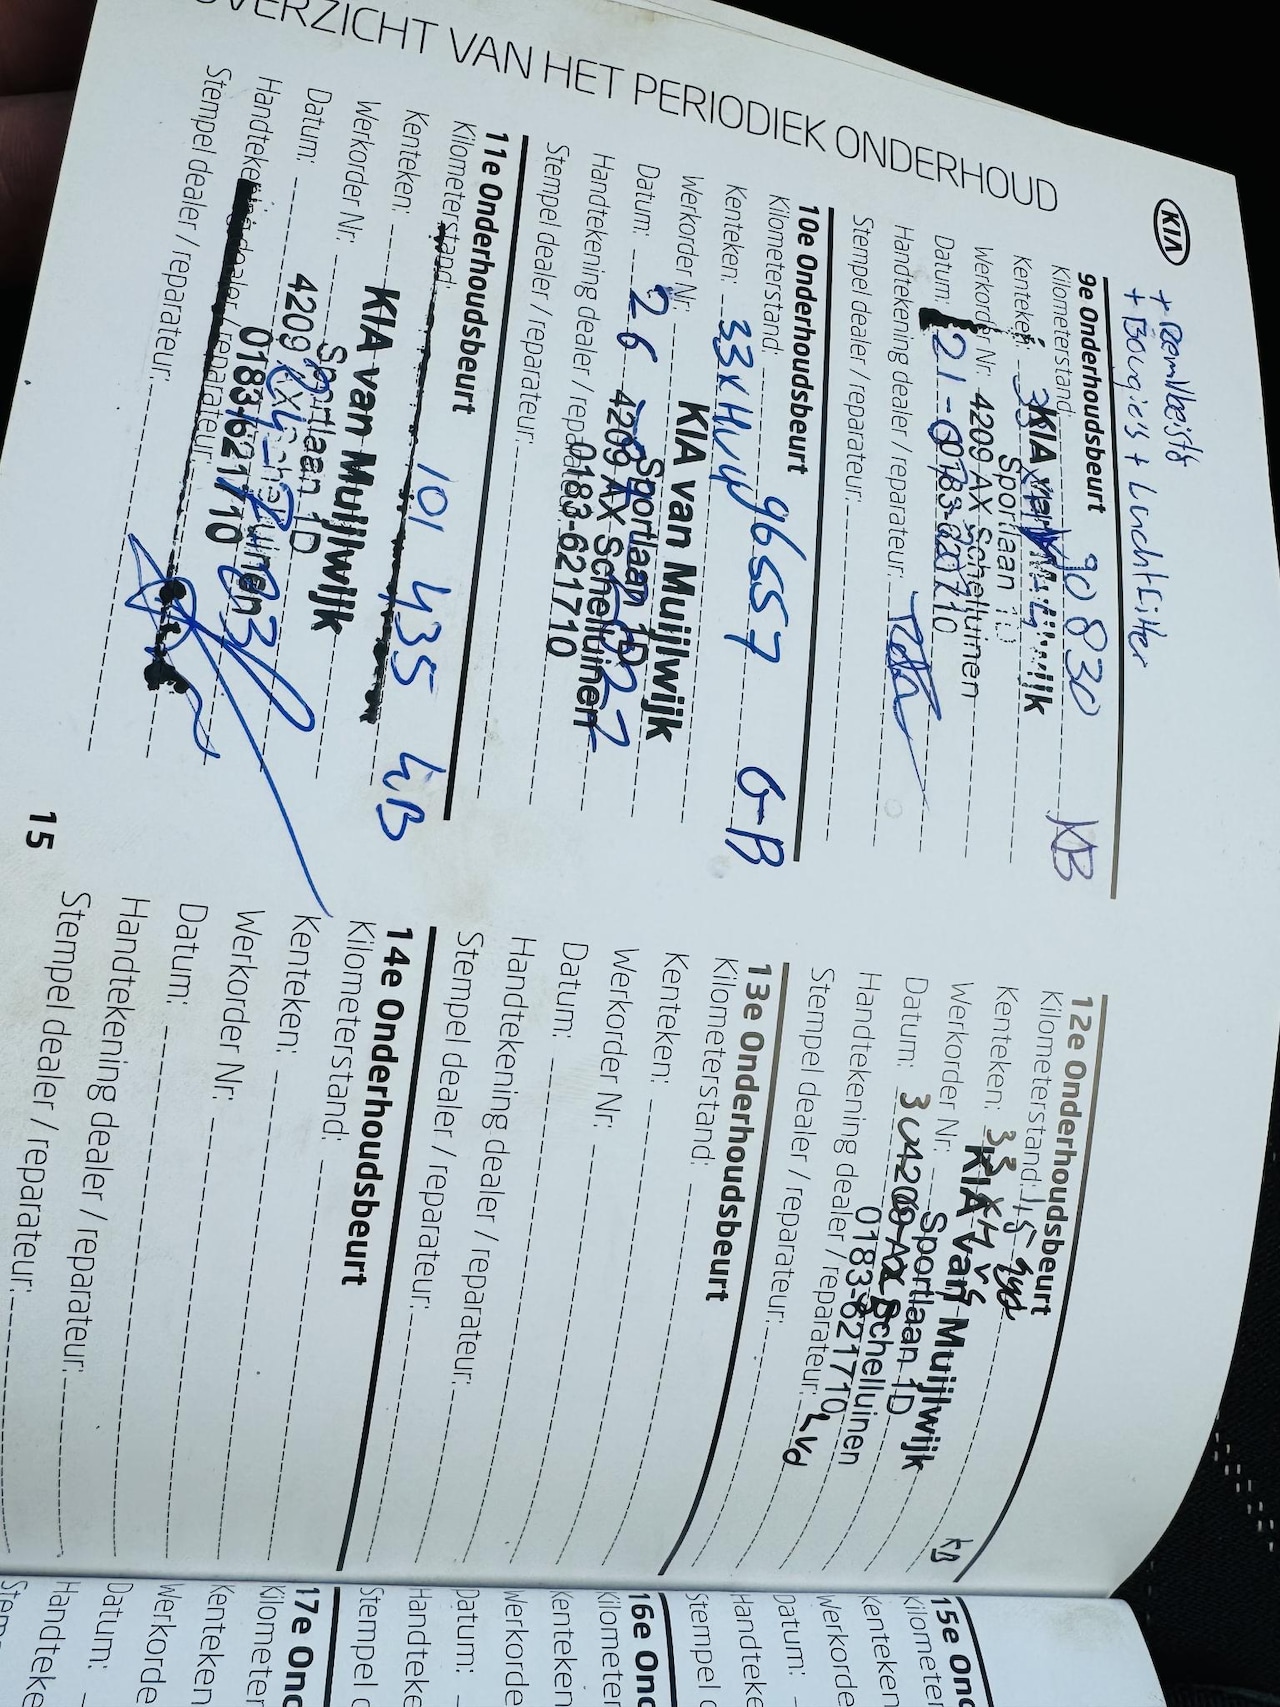 OVERZICHT VAN HET PERIODIEK ONDERHOUD
KIA
+ Bougie's + Luchtfilter
9e Onderhoudsbeurt
Kilometerstand: 90 830 KB
Kenteken:
KIA van Muijlwijk
Werkorder Nr:
Sportlaan 1D
4209 AX Schelluinen
Datum: 21-
0183-621710
Handtekening dealer / reparateur:
Stempel dealer / reparateur:
10e Onderhoudsbeurt
Kilometerstand: 96557 G-B
Kenteken: 33XHV4
Werkorder Nr:
KIA van Muijlwijk
Datum: 26
Sportlaan 1D
4209 AX Schelluinen
Handtekening dealer / reparateur:
0183-621710
Stempel dealer / reparateur:
11e Onderhoudsbeurt
Kilometerstand: 101 435 GB
Kenteken:
KIA van Muijlwijk
Werkorder Nr:
Sportlaan 1D
Datum:
4209 AX Schelluinen
Handtekening dealer / reparateur:
0183-621710
Stempel dealer / reparateur:
12e Onderhoudsbeurt
Kilometerstand:
KB
Kenteken: 33
KIA van Muijlwijk
Werkorder Nr:
Sportlaan 1D
Datum:
4209 AX Schelluinen
Handtekening dealer / reparateur:
0183-621710
Stempel dealer / reparateur:
13e Onderhoudsbeurt
Kilometerstand:
Kenteken:
Werkorder Nr:
Datum:
Handtekening dealer / reparateur:
Stempel dealer / reparateur:
14e Onderhoudsbeurt
Kilometerstand:
Kenteken:
Werkorder Nr:
Datum:
Handtekening dealer / reparateur:
Stempel dealer / reparateur:
15
15e Ond
Kilometer
Kenteken
Werkorde
Datum:
Handtekе
Stempel
16e Ond
Kilometer
Kenteken
Werkorde
Datum:
Handteke
Stempel
17e Ond
Kilometer
Kenteken
Werkorde
Datum:
Handteke
Stem